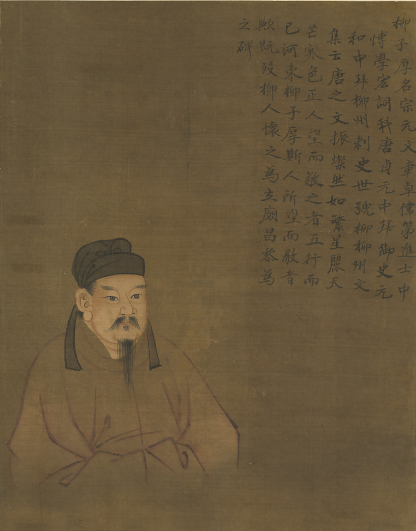 柳子厚名宗元文章卓偉第進士中
博學宏詞科唐貞元中拜御史元
和中拜柳州刺史世號柳柳州文
集云唐之文振燦然如繁星麗天
芒寒色正人望而敬之者五行而
已河東柳子厚斯人所望而敬者
歟既歿柳人懷之為立廟昌黎為
之碑